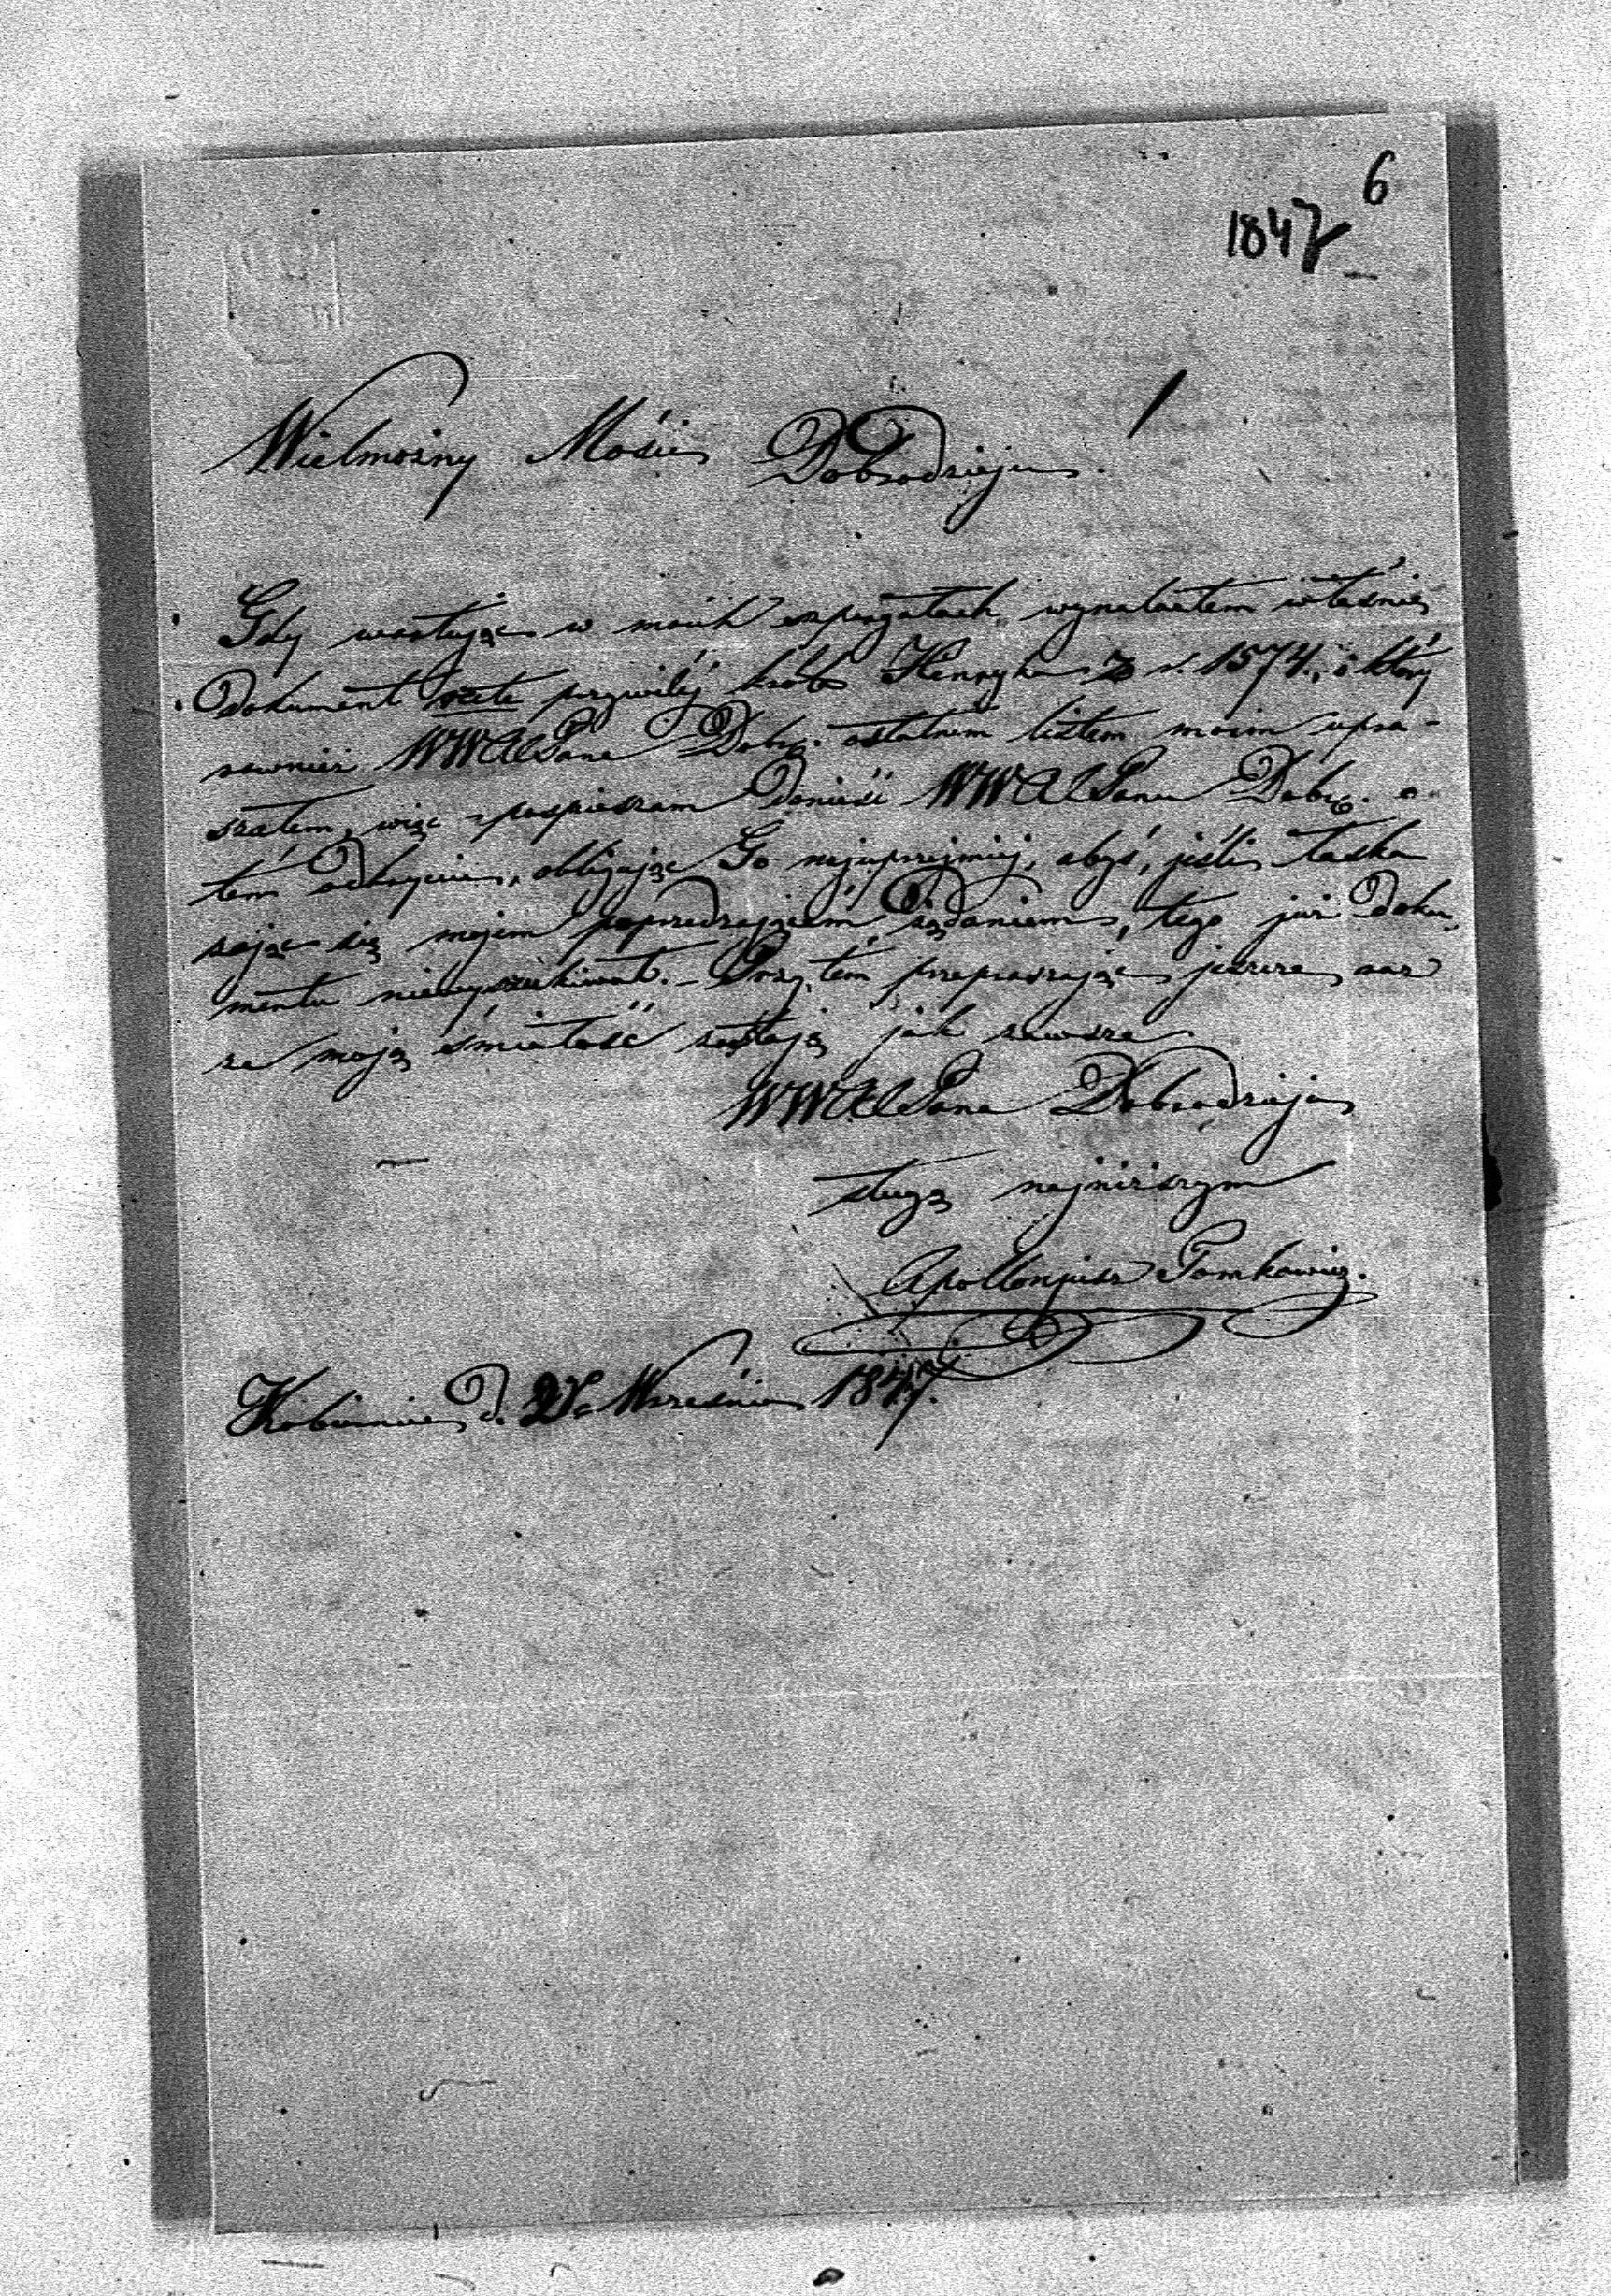 6
1847
Wielmożny Mości Dobrodzieju !
Gdy wertując w moich szpargałach, wynalazłem właśnie
Dokument recte przywiléj króla Henryka z r. 1574., o który
rownież WWMPana Dobr. ostatnim listem moim upra-
szałem, więc pospieszam donieść WWMPanu Dobr. o
tém odkryciu, obligując Go najuprzejmiéj, abyś, jeśli łaska
zająć się mojém poprzedzającém żądaniem, tego już doku-
mentu niewyszukiwał. – Przytém przepraszając jeszcze raz
za moją śmiałość zostaję jak zawsze
WWMPana Dobrodzieja
sługą najniższym
Apollonjusz Tomkowicz.
Kobiernice d. Września 1847.